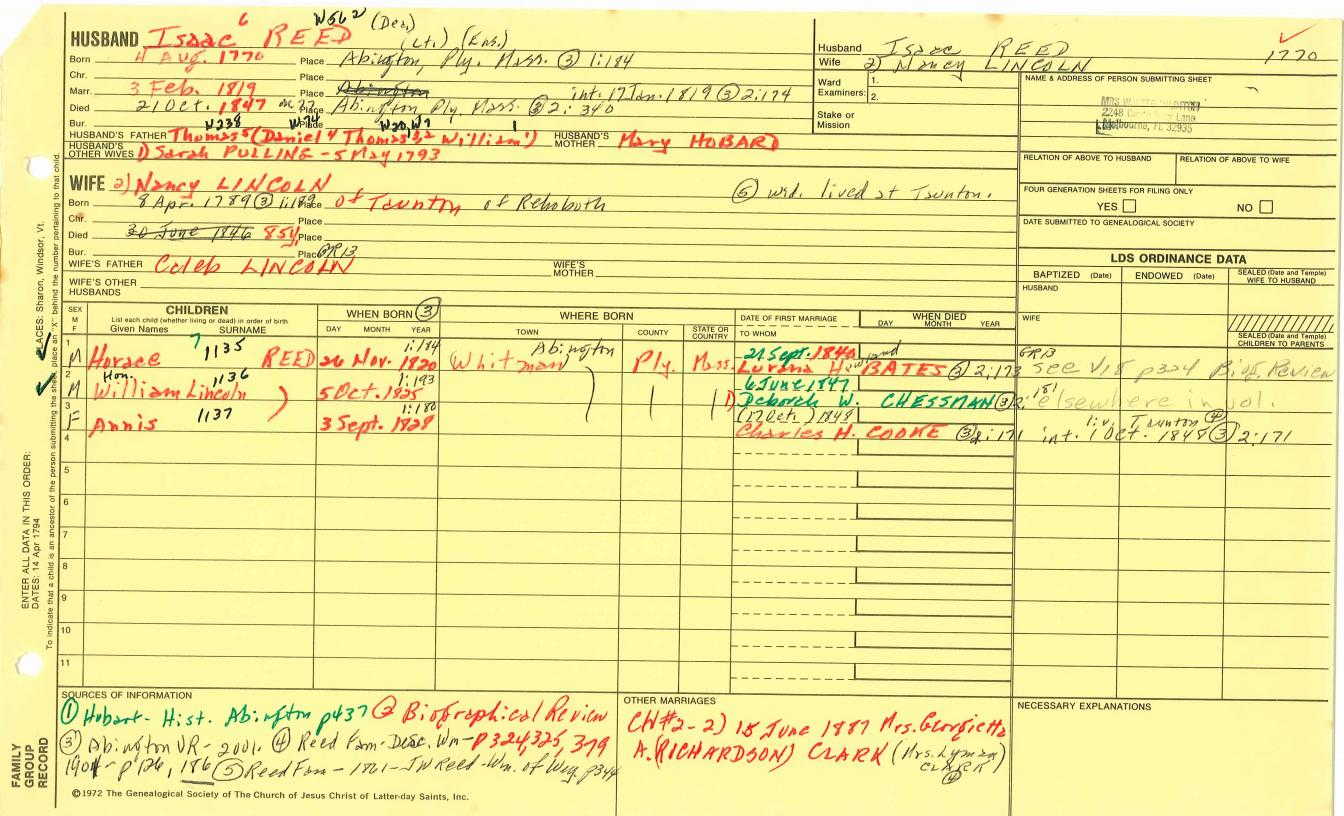 6 W562 (Dea.)
HUSBAND Isaac REED (Lt.) (Ens.)
Born 4 Aug. 1770 Place Abington, Ply. Mass. ③ 1:184
Chr. Place
Marr. 3 Feb. 1819 Place Abington int. 17 Jan. 1819 ③ 2:174
Died 21 Oct. 1847 Place Abington Ply. Mass. ③ 2:340
Bur. W238 W74 Place W20, W7 1
HUSBAND'S FATHER Thomas5 (Daniel4 Thomas3,2 William1) HUSBAND'S MOTHER Mary HOBARD
HUSBAND'S OTHER WIVES 1) Sarah PULLING - 5 May 1793
WIFE 2) Nancy LINCOLN ⑤ wid. lived at Taunton.
Born 8 Apr. 1789 ③ 1:189 Place of Taunton of Rehoboth
Chr. Place
Died 30 June 1846 85y Place
Bur. Place GR13
WIFE'S FATHER Caleb LINCOLN WIFE'S MOTHER
WIFE'S OTHER HUSBANDS
Husband Isaac REED 1770
Wife 2) Nancy LINCOLN
Ward Examiners: 1.
2.
Stake or Mission
NAME & ADDRESS OF PERSON SUBMITTING SHEET
MRS
2248 Lane
Melbourne, FL 32935
RELATION OF ABOVE TO HUSBAND RELATION OF ABOVE TO WIFE
FOUR GENERATION SHEETS FOR FILING ONLY
YES NO
DATE SUBMITTED TO GENEALOGICAL SOCIETY
LDS ORDINANCE DATA
BAPTIZED (Date) ENDOWED (Date) SEALED (Date and Temple) WIFE TO HUSBAND
HUSBAND
WIFE
SEALED (Date and Temple) CHILDREN TO PARENTS
SEX M F CHILDREN WHEN BORN ③ WHERE BORN DATE OF FIRST MARRIAGE WHEN DIED
List each child (whether living or dead) in order of birth
Given Names SURNAME DAY MONTH YEAR TOWN COUNTY STATE OR COUNTRY TO WHOM DAY MONTH YEAR
1 7 1135 1:184 Abington 21 Sept. 1840 GR13
M Horace REED 26 Nov. 1820 Whitman Ply. Mass. Lurana Howland BATES ③ 2:173 see V18 p324 Biog. Review
2 Hon. 1136 1:193 6 June 1847
M William Lincoln 5 Oct. 1825 1) Deborah W. CHESSMAN ③ 2:181 elsewhere in vol.
3 1137 1:180 (17 Oct.) 1848 liv. Taunton ④
F Annis 3 Sept. 1828 Charles H. COOKE ③ 2:171 int. 1 Oct. 1848 ③ 2:171
4
5
6
7
8
9
10
11
SOURCES OF INFORMATION
① Hobart- Hist. Abington p437 ② Biographical Review
③ Abington VR- 2001. ④ Reed Fam-Desc. Wm- p324,325, 379
1901- p126, 186 ⑤ Reed Fam- 1861- JW Reed- Wm. of Wey p344
©1972 The Genealogical Society of The Church of Jesus Christ of Latter-day Saints, Inc.
OTHER MARRIAGES
CH#2-2) 15 June 1887 Mrs. Georgietta
A. (RICHARDSON) CLARK (Mrs. Lyman CLARK ④)
NECESSARY EXPLANATIONS
FAMILY GROUP RECORD
ENTER ALL DATA IN THIS ORDER:
DATES: 14 Apr 1794
PLACES: Sharon, Windsor, Vt.
To indicate that a child is an ancestor of the person submitting the sheet, place an "X" behind the number pertaining to that child.